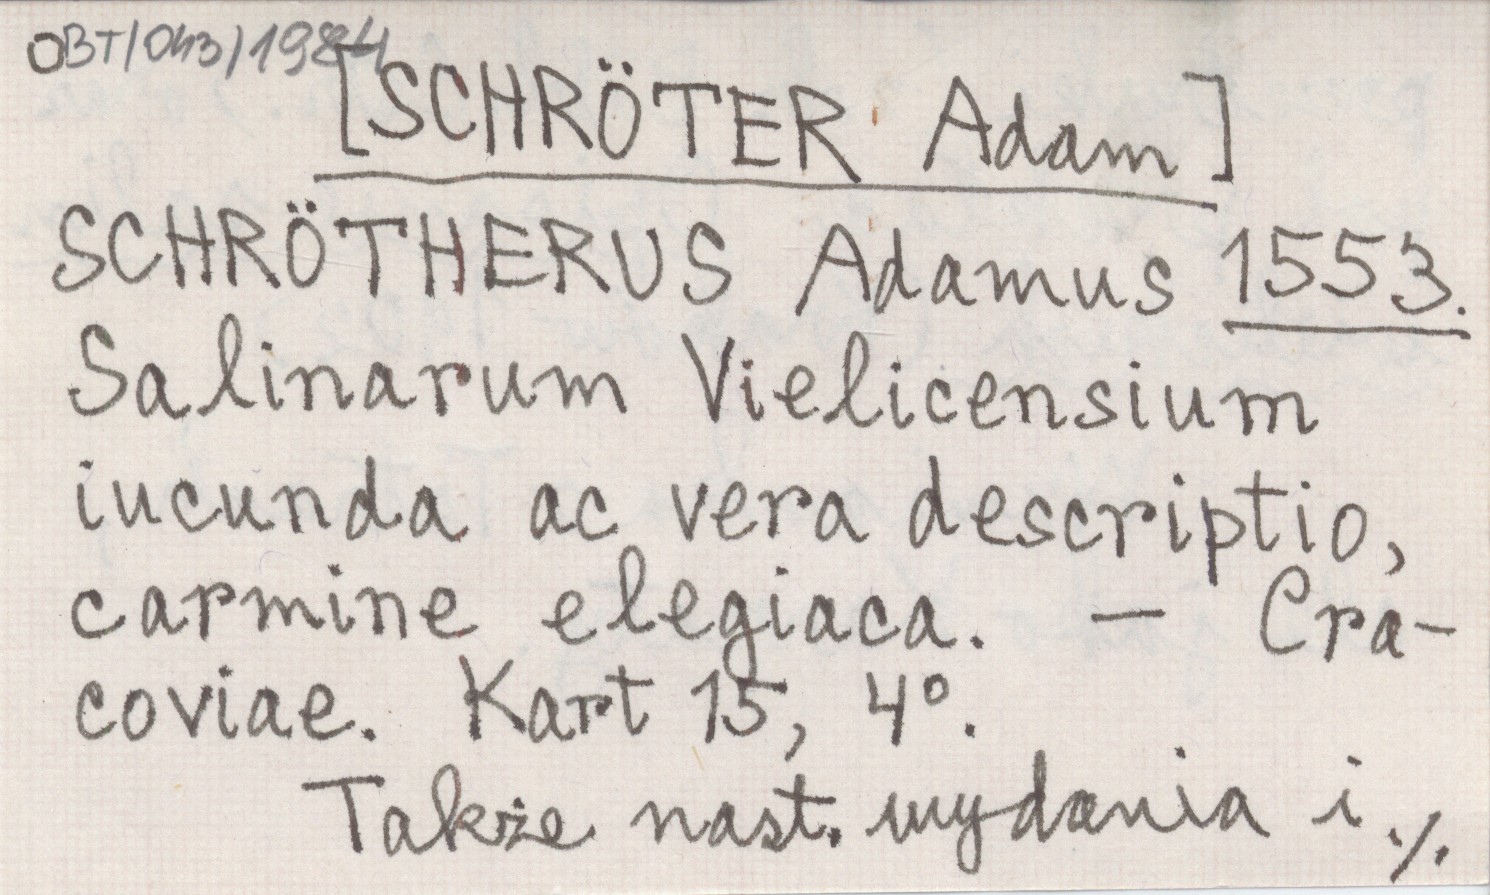 OBT/043/1984
[SCHRÖTER Adam]
SCHRÖTHERUS Adamus 1553.
Salinarum Vielicensium
iucunda ac vera descriptio,
carmine elegiaca. – Cra-
coviae. Kart 15, 4°.
Także nast. wydania i ./.